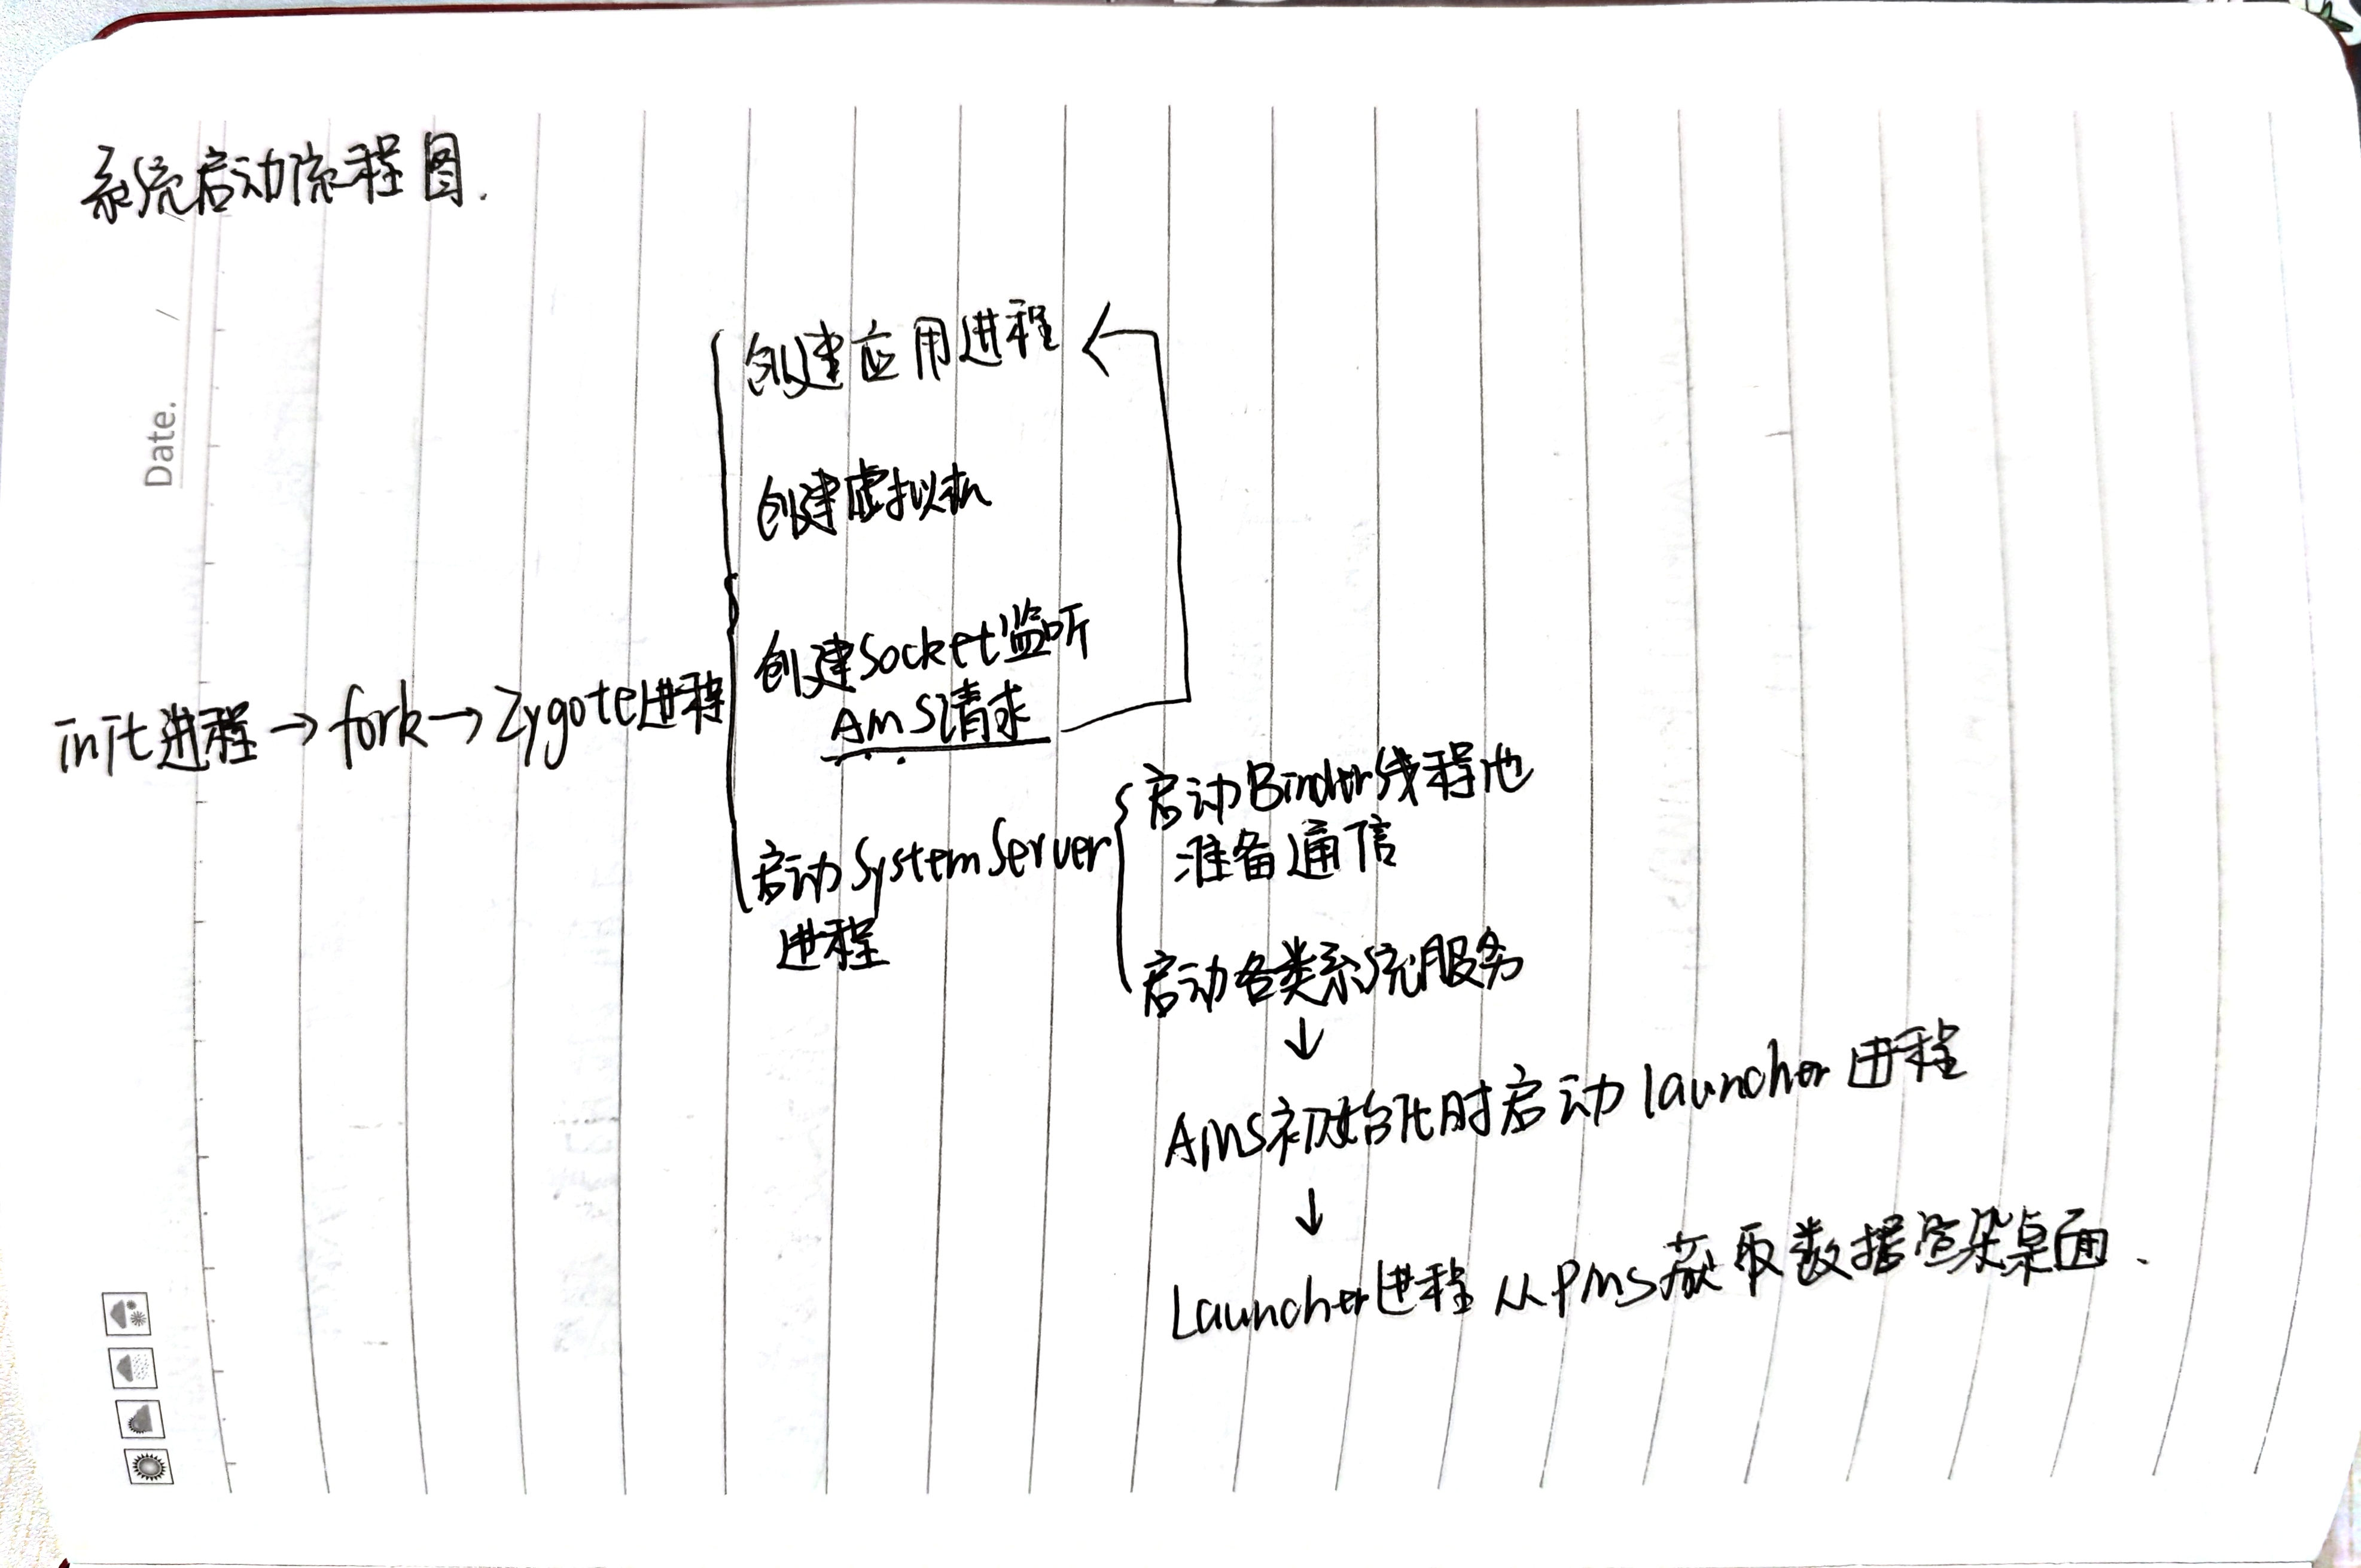 系统启动流程图.
Date.
创建应用进程
创建虚拟机
创建Socket监听
AMS请求
init进程→fork→Zygote进程
启动SystemServer
进程
启动Binder线程池
准备通信
启动各类系统服务
↓
AMS初始化时启动launcher进程
↓
Launcher进程从PMS获取数据渲染桌面.